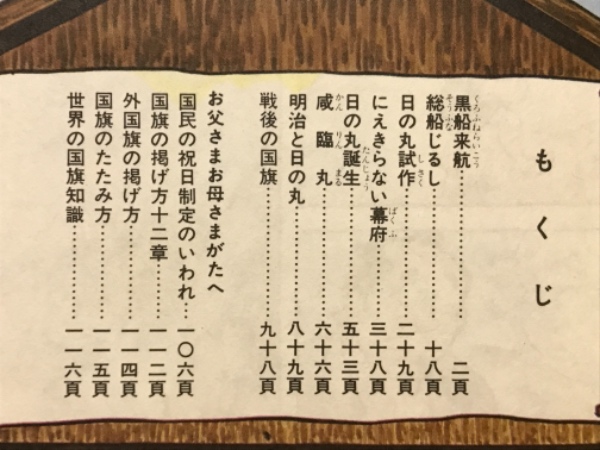 もくじ
黒船来航……………二頁
くろふねらいこう
総船じるし……………十八頁
そうふな
日の丸試作……………二十九頁
しさく
にえきらない幕府……………三十八頁
ばくふ
日の丸誕生……………五十三頁
たんじょう
咸臨丸……………六十六頁
かんりんまる
明治と日の丸……………八十九頁
戦後の国旗……………九十八頁
お父さまお母さまがたへ
国民の祝日制定のいわれ……一〇六頁
国旗の掲げ方十二章……………一一二頁
外国旗の掲げ方……………一一四頁
国旗のたたみ方……………一一五頁
世界の国旗知識……………一一六頁